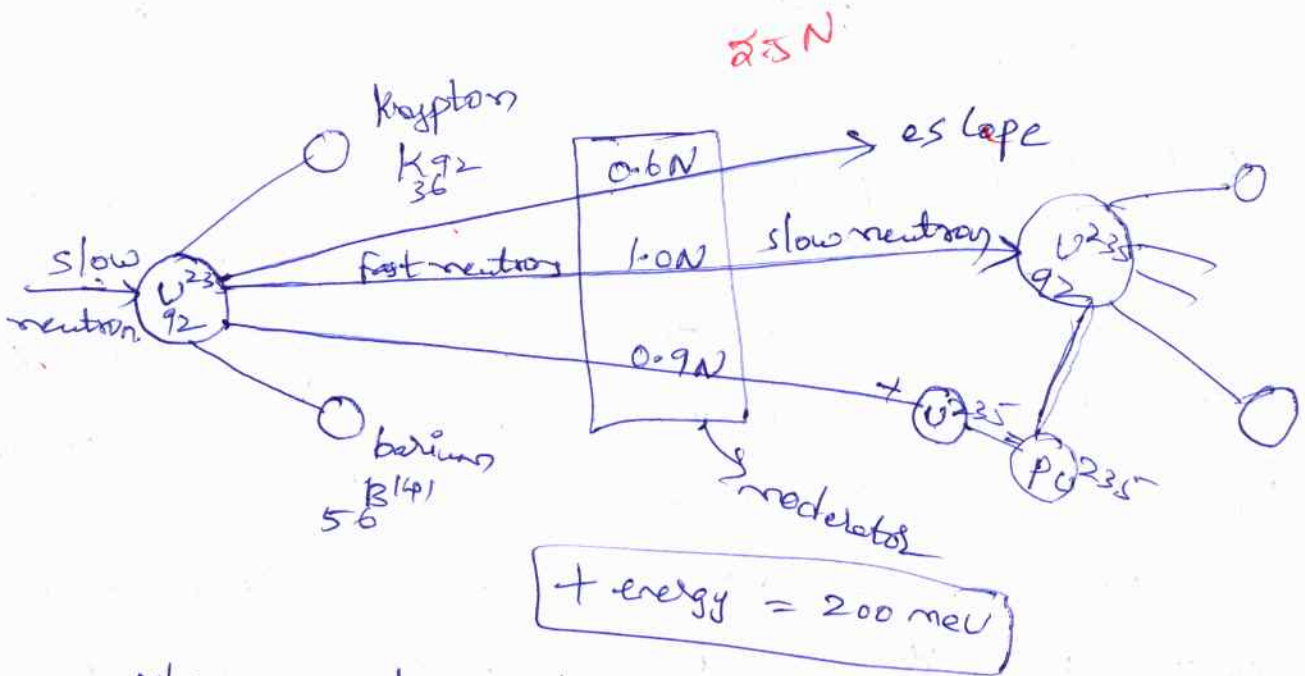 2.5 N
Krypton
K92
36
0.6N
escape
slow
neutron
U235
92
fast neutron
1.0N
slow neutron
U235
92
0.9N
+
U235
PU235
barium
56B141
moderator
+ energy = 200 meu